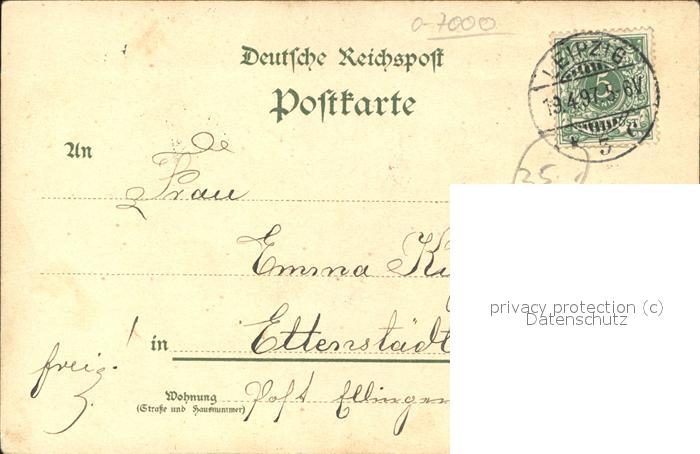 a-7000
Deutsche Reichspost
Postkarte
LEIPZIG
19.4.97. 5-6V.
* 5 c
5
An
Frau
35.-
Emma
privacy protection (c)
Datenschutz
in Ettenstädt
freig.!
Wohnung
(Straße und Hausnummer)
Post Ellingen